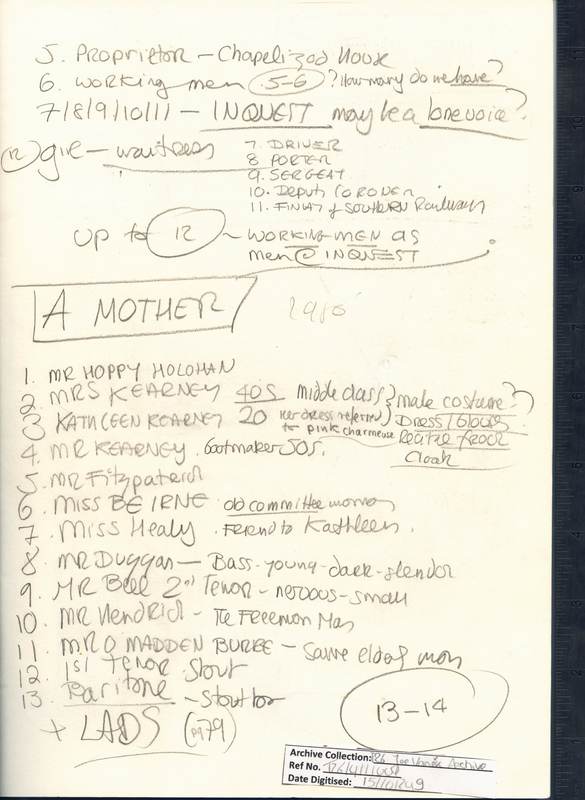 5. Proprietor - Chapelizod House
6. working men 5-6 ? How many do we have?
7/8/9/10/11 - INQUEST may be a lone voice?
(12) girl - waitress
7. DRIVER
8 PORTER
9. SERGEAT
10. Deputy CORONER
11. FINLAY of SOUTHERN Railways
up to 12 ~ WORKING MEN as
men @ INQUEST
A MOTHER
1. MR HOPPY HOLOHAN
2 MRS KEARNEY 40s middle class } make costume?
3 KATHLEEN KEARNEY 20 her dress referred } Dress/Blouse
to pink charmeuse
4. MR KEARNEY. bootmaker 50s.
frock
Cloak
5. MR Fitzpatrick
6. Miss BEIRNE old committee woman
7. Miss Healy. Friend to Kathleen.
8 MR Duggan - Bass-young-dark-slender
9. MR Bell 2nd Tenor - nervous-small
10. MR Hendrick - The Freeman Man
11. MR O MADDEN BURKE - Suave elderly man
12. 1st Tenor Stout
13. Baritone - Stout too
+ LADS (pg 79)
13-14
Archive Collection: T26 Joe Vanek Archive
Ref No.
Date Digitised: